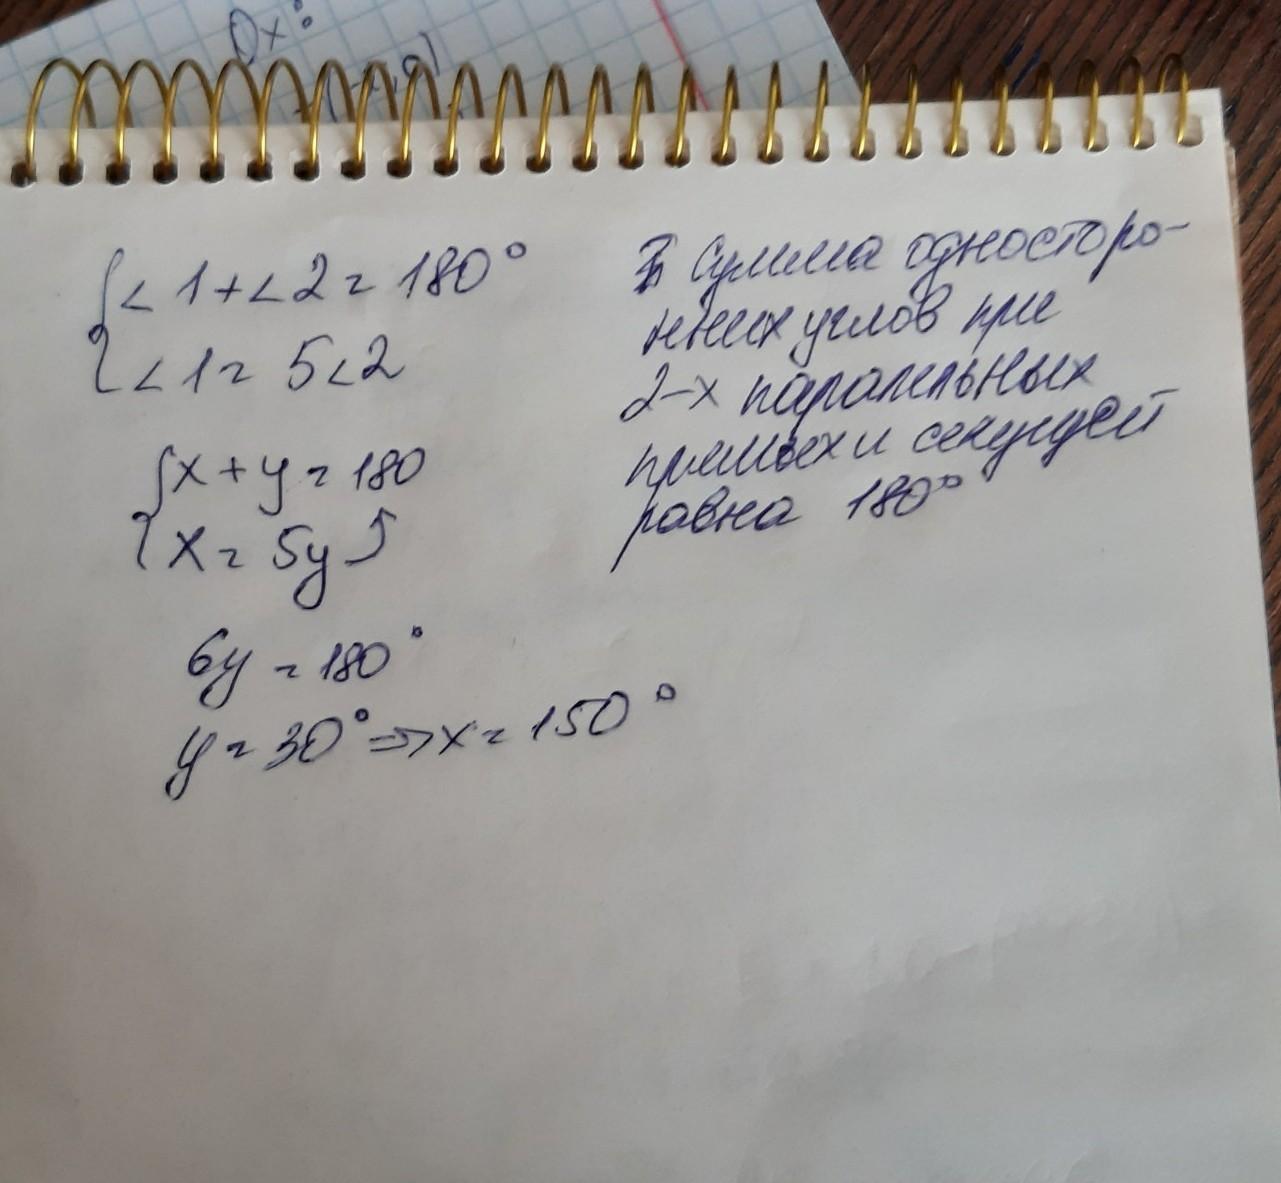 Ox:
{ < 1 + < 2 = 180°
< 1 = 5 < 2
{ x + y = 180
x = 5y
6y = 180°
y = 30° => x = 150°
Сумма односторо-
нних углов при
2-х паралельных
прямых и секущей
равна 180°